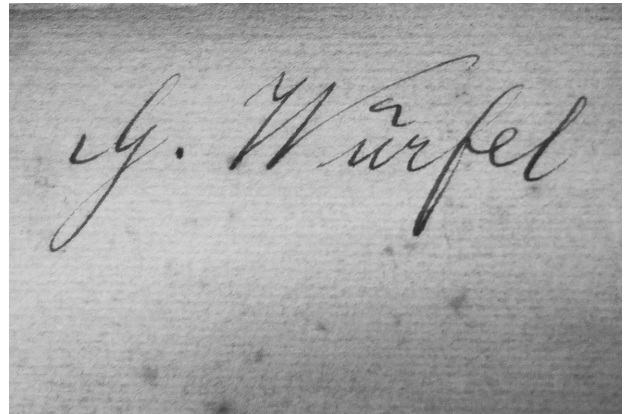 G. Würfel